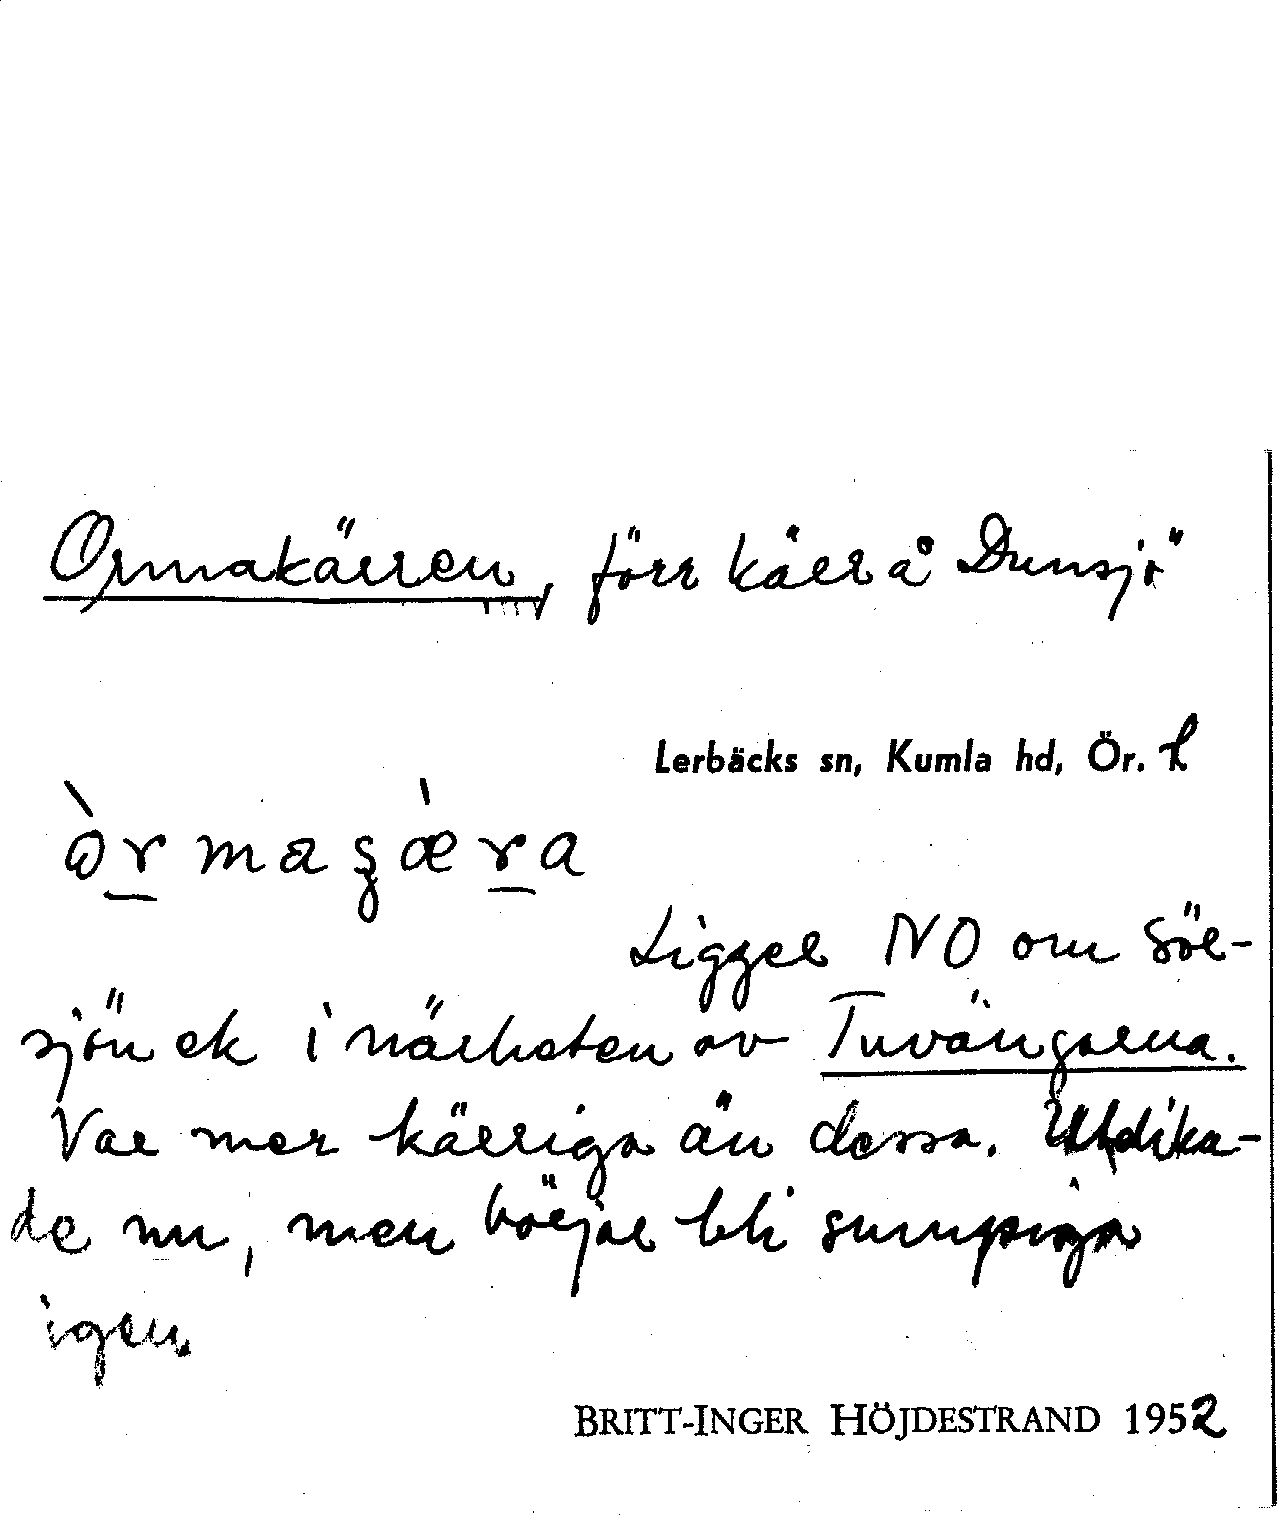 Ormakärren, förr kärr å Dunsjö
Lerbäcks sn, Kumla hd, Ör. L
òr magæ̀ra
Ligger NO om Sör-
sjön ek i närheten av Tuvängarna.
Var mer kärriga än dessa. Utdika-
de nu, men börjar bli sumpiga
igen.
BRITT-INGER HÖJDESTRAND 1952